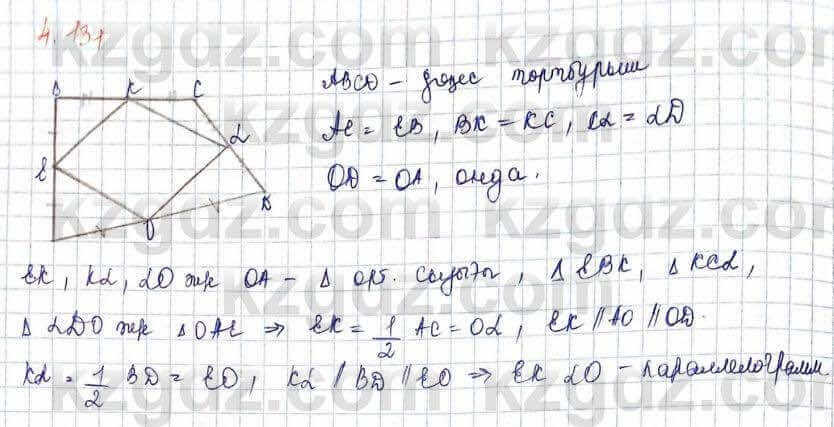 4.131
B K C
ABCD - дөңес төртбұрыш
Aℓ = ℓB, BK = KC, CL = LD
L
ℓ
OD = OA, онда.
D
O
ℓK, KL, LO және OA - Δ орт. сызығы, Δ ℓBK, Δ KCL,
Δ LDO және Δ OAℓ ⇒ ℓK = 1/2 AC = OL, ℓK // AO // OD.
KL = 1/2 BD = ℓO, KL // BD // ℓO ⇒ ℓKLO - параллелограмм.
kzgdz.com